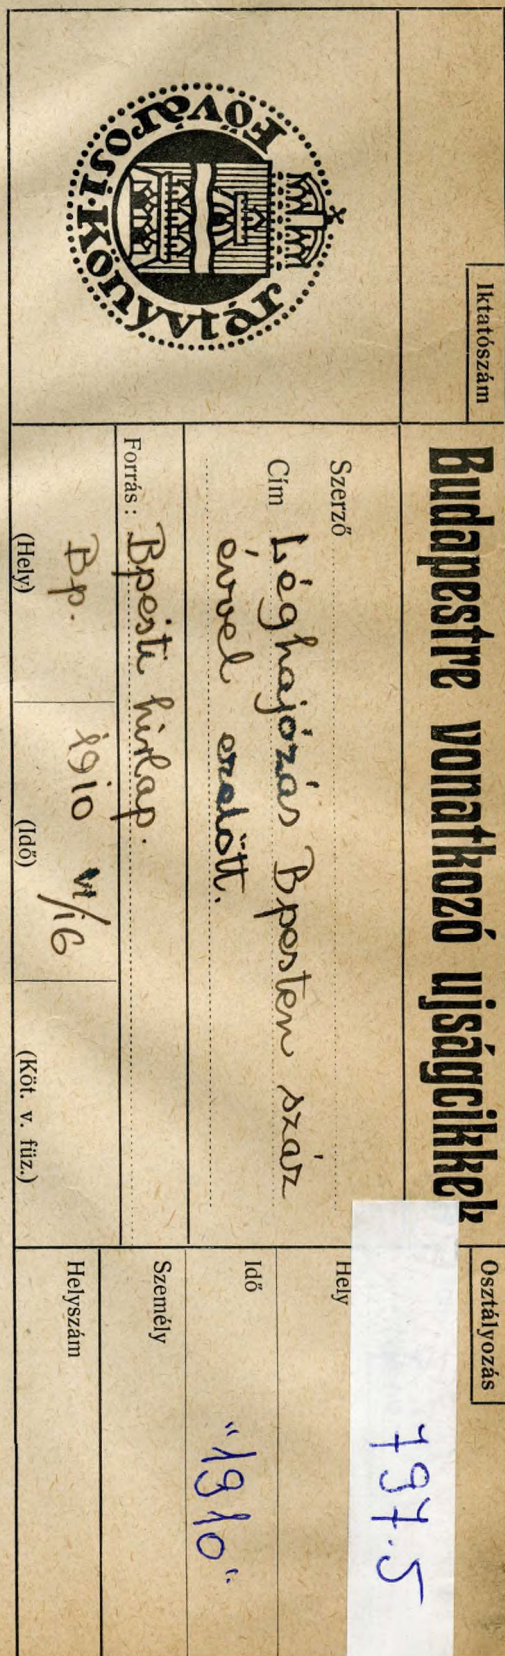 Iktatószám
Fővárosi Könyvtár
Budapestre vonatkozó ujságcikkek
Szerző
Cím Léghajózás Bpesten száz
évvel ezelőtt.
Forrás: Bpesti hirlap.
Bp. 1910 VI/16
(Hely) (Idő) (Köt. v. füz.)
Osztályozás
797.5
Hely
Idő "1910".
Személy
Helyszám